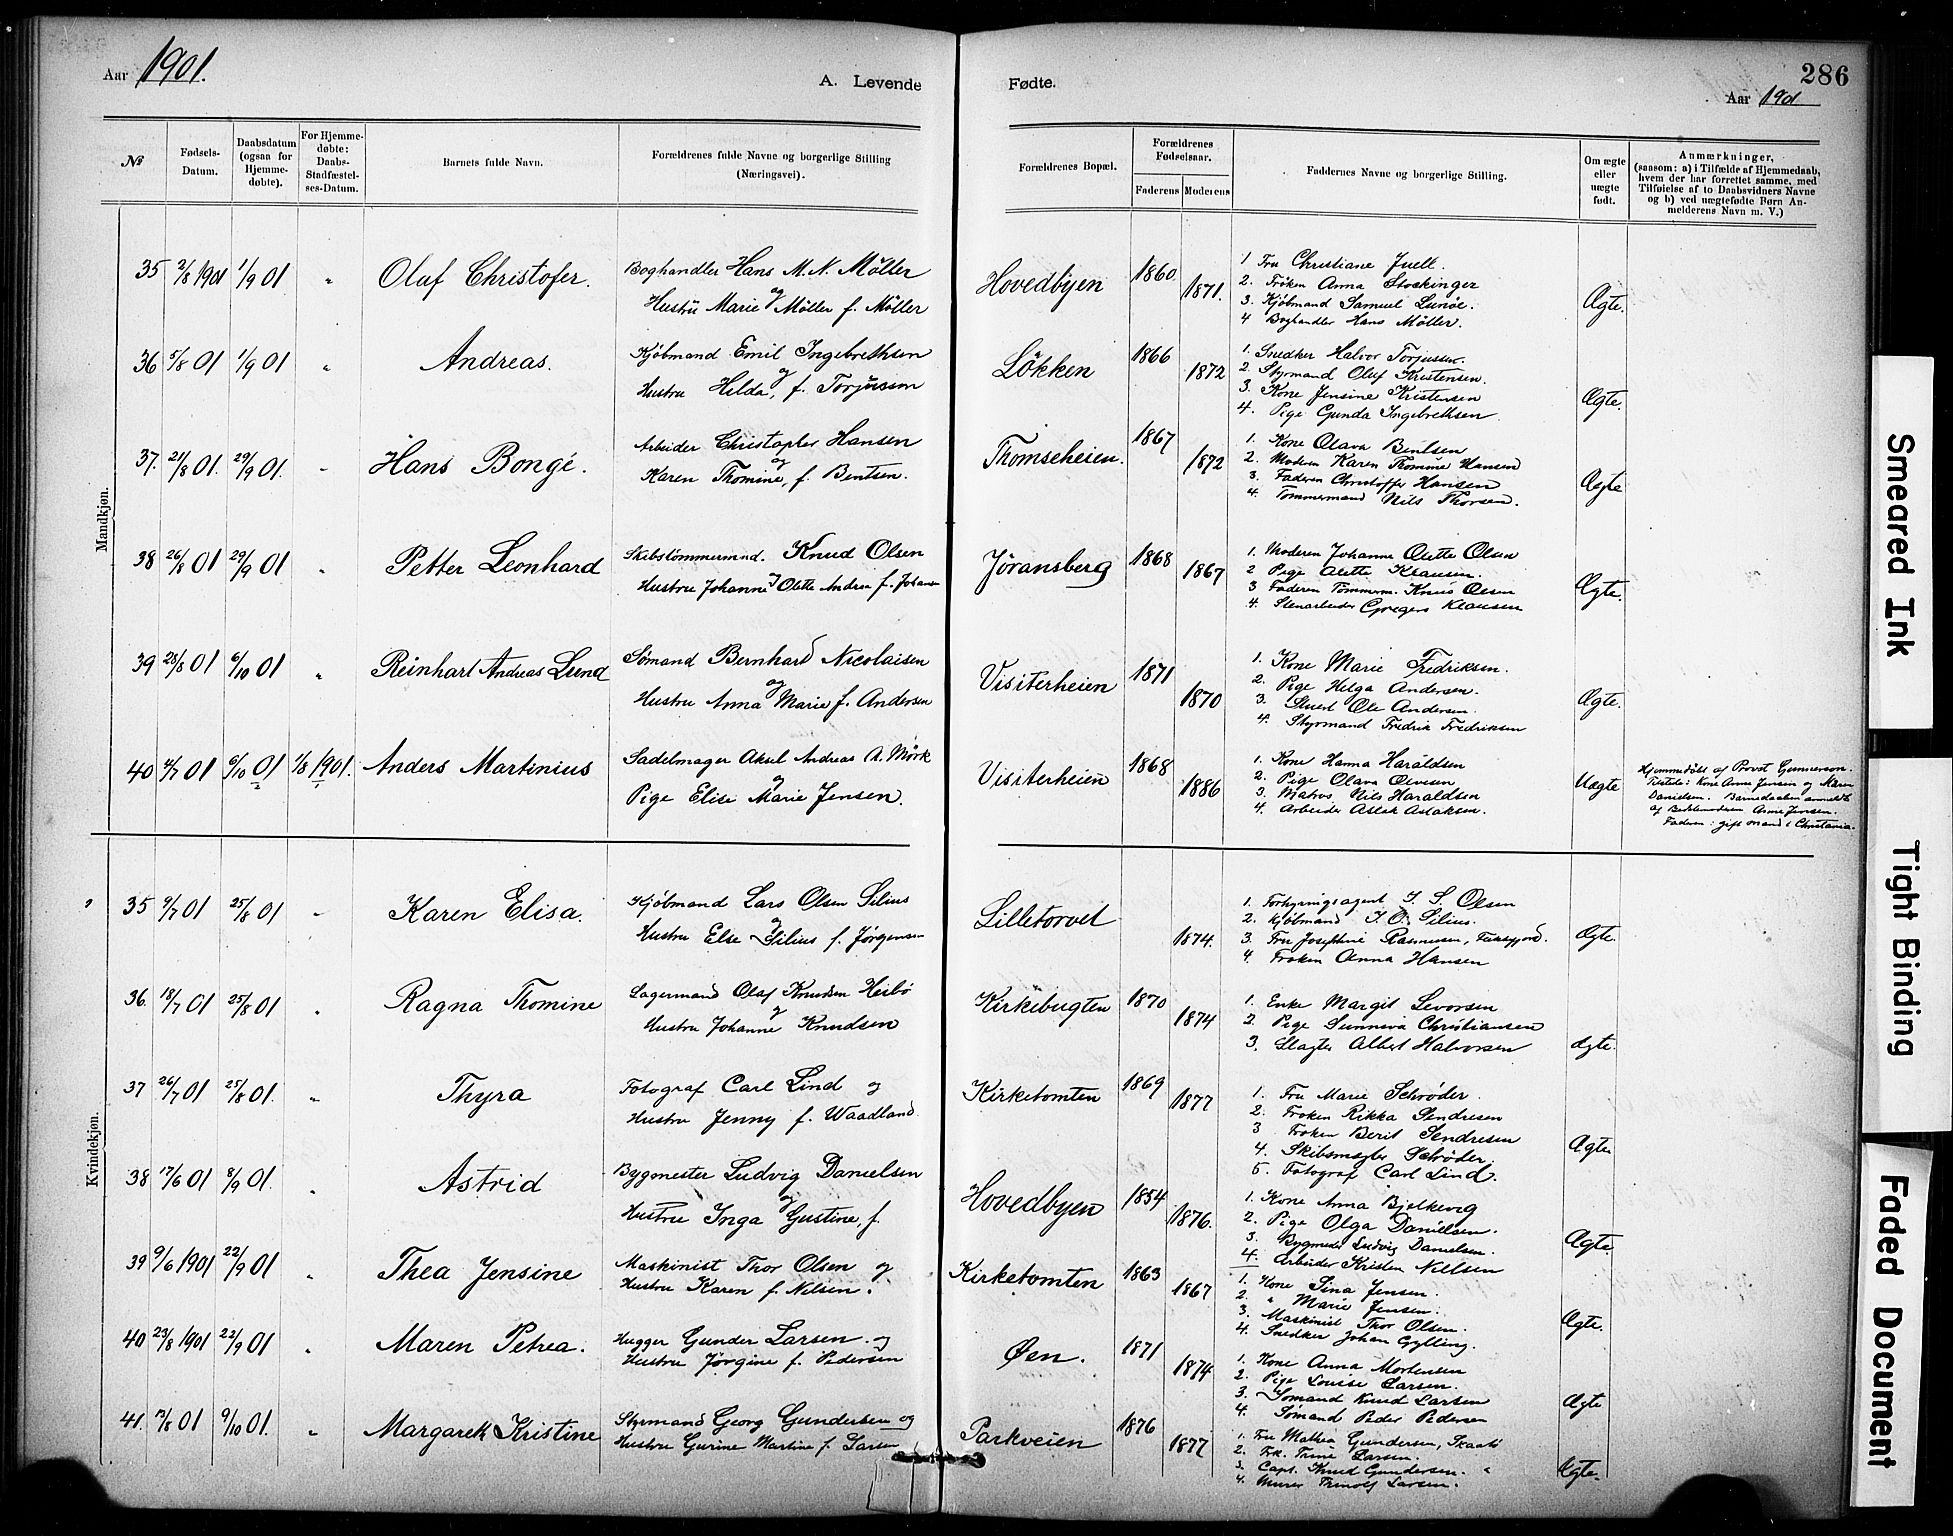 Aar 1901.
A. Levende Fødte.
286
Aar 1901
№
Fødsels-Datum.
Daabsdatum (ogsaa for Hjemmedøbte).
For Hjemmedøbte: Daabs-Stadfæstelses-Datum.
Barnets fulde Navn.
Forældrenes fulde Navne og borgerlige Stilling (Næringsvei).
Forældrenes Bopæl.
Forældrenes Fødselsaar.
Faderens Moderens
Faddernes Navne og borgerlige Stilling.
Om ægte eller uægte født.
Anmærkninger,
(saasom: a) i Tilfælde af Hjemmedaab,
hvem der har forrettet samme, med
Tilføielse af to Daabsvidners Navne
og b) ved uægtefødte Børn Anmelderens Navn m. V.)
Mandkjøn.
35 2/8 1901 1/9 01 " Oluf Christofer. Boghandler Hans M. N. Møller og
Hustru Marie Møller f. Møller
Hovedbyen 1860 1871.
1 Fru Christiane Juell.
2. Frøken Anna Stockinger
3. Kjøbmand Samuel Lunöe.
4 Boghandler Hans Møller.
Ægte.
36 5/8 01 1/9 01 " Andreas. Kjøbmand Emil Ingebrethsen og
Hustru Hilda, f. Torjusen
Løkken 1866 1872
1. Snedker Halvor Torjussen.
2. Styrmand Oluf Kristensen.
3. Kone Jensine Kristensen
4. Pige Gunda Ingebrethsen.
Ægte.
37. 21/8 01. 29/9 01. " Hans Bongé. Arbeider Christopher Hansen og
Karen Thomine, f. Bentsen.
Thomseheien. 1867 1872
1. Kone Olava Bentsen
2. Moderen Karen Thomine Hansen
3. Faderen Christoffer Hansen
4. Tømmermand Nils Thorsen.
Ægte
38 26/8 01 29/9 01 " Petter Leonhard Skibstømmermnd. Knud Olsen og
Hustru Johanne Olette Andrea f. Johans
Jøransberg 1868 1867
1. Moderen Johanne Olette Olsen
2 Pige Alette Klausen.
3 Faderen Tømmerm. Knud Olsen
4. Stenarbeider Gregers Klausen
Ægte.
39 28/8 01 6/10 01 " Reinhart Andreas Lund Sømand Bernhard Nicolaisen og
Hustru Anna Marie f. Andersen
Visiterheien 1871 1870
1. Kone Marie Fredriksen.
2. Pige Helga Andersen.
3. Stuert Ole Andersen.
4. Styrmand Fredrik Fredriksen
Ægte.
40 4/7 01 6/10 01 1/8 1901. Anders Martinius Sadelmager Aksel Andreas A. Mørk og
Pige Elise Marie Jensen.
Visiterheien 1868 1886
1. Kone Hanna Haraldsen
2. Pige Olava Olvesen
3. Matros Nils Haraldsen
4. Arbeider Aslak Aslaksen.
Uægte
Hjemmedøbt af Provst Gunnerson.
Testes: Kone Anne Jensen og Maren
Danielsen. Barnedaaben anmeldt
af Bedstemoderen Anne Jensen.
Faderen: gift mand i Christiania.
Kvindekjøn.
35 9/7 01 25/8 01 " Karen Elisa. Kjøbmand Lars Olsen Silius og
Hustru Else Silius f. Jørgensen
Lilletorvet 1874.
1. Forhyringsagent J. S. Olsen
2. Kjøbmand J. O. Silius.
3. Fru Josephine Rasmusen,
4. Frøken Anna Hansen
Ægte.
36. 18/7 01 25/8 01 " Ragna Thomine Lagermand Olaf Knudsen Heibö og
Hustru Johanne Knudsen
Kirkebugten 1870 1874
1. Enke Margit Levorsen
2. Pige Sunneva Christiansen
3. Slagter Albert Halvorsen
Ægte.
37 26/7 01 25/8 01. " Thyra Fotograf Carl Lind og
Hustru Jenny f. Waadland.
Kirketomten 1869 1877
1. Fru Marie Schrøder.
2. Frøken Rikka Sendresen
3 Frøken Berit Sendresen
4. Skibsmægler Schrøder.
5. Fotograf Carl Lind.
Ægte
38 17/6 01 8/9 01. " Astrid Bygmester Ludvig Danielsen og
Hustru Inga Gustine, f.
Hovedbyen 1854 1876.
1. Kone Anna Bjelkevig
2. Pige Olga Danielsen.
3. Bygmester Ludvig Danielsen.
4. Arbeider Kristen Nielsen
Ægte
39 9/6 1901 22/9 01 " Thea Jensine Maskinist Thor Olsen og
Hustru Karen f. Nilsen.
Kirketomten 1863 1867
1. Kone Sina Jensen.
2. " Marie Jensen.
3. Maskinist Thor Olsen.
4. Snedker Johan Gylling.
Ægte.
40 23/8 1901 22/9 01 " Maren Petrea. Hugger Gunder Larsen og
Hustru Jørgine f. Pedersen
Øen. 1871 1874
1. Kone Anna Mortensen
2. Pige Louise Larsen.
3. Sømand Knud Larsen
4. Sømand Peder Pedersen
Ægte
41. 7/8 01 9/10 01. " Margareth Kristine Styrmand Georg Gundersen og
Hustru Gurine Martine f. Larsen
Parkveien 1876 1877
1. Fru Mathea Gundersen, Skaatö
2. Frk. Trine Larsen.
3. Capt. Knud Gundersen. "
4. Murer Larsen.
Ægte.
Smeared Ink
Tight Binding
Faded Document